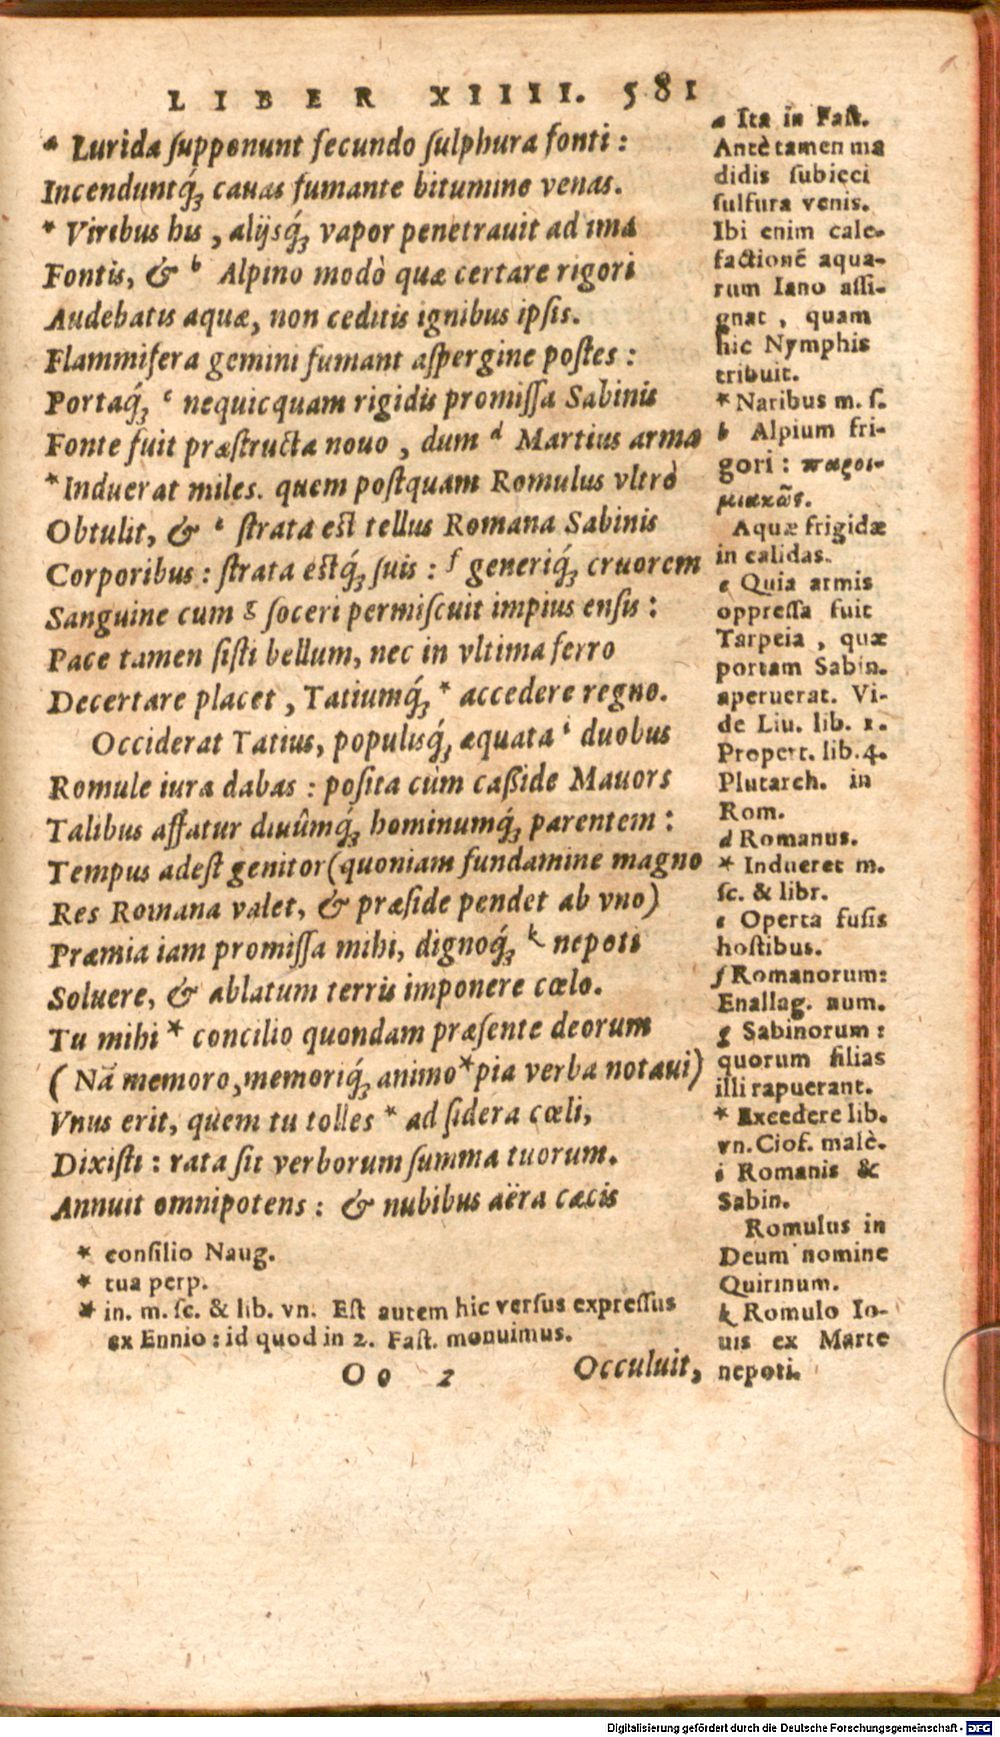 LIBER XIIII. 581
a Lurida ſupponunt fecundo ſulphura fonti :
Incenduntq́; cauas fumante bitumine venas.
* Viribus his , alijsq́; vapor penetrauit ad ima
Fontis, & b Alpino modò quæ certare rigori
Audebatis aquæ, non ceditis ignibus ipſis.
Flammifera gemini fumant aſpergine poſtes :
Portaq́; c nequicquam rigidis promiſſa Sabinis
Fonte fuit præſtructa nouo , dum d Martius arma
* Induerat miles. quem poſtquam Romulus vltrò
Obtulit, & e ſtrata eſt tellus Romana Sabinis
Corporibus : ſtrata eſtq́; ſuis : f generiq́; cruorem
Sanguine cum g ſoceri permiſcuit impius enſis :
Pace tamen ſiſti bellum, nec in vltima ferro
Decertare placet , Tatiumq́; * accedere regno.
Occiderat Tatius, populisq́; æquata i duobus
Romule iura dabas : poſita cùm caßide Mauors
Talibus affatur diuûmq́; hominumq́; parentem :
Tempus adeſt genitor (quoniam fundamine magno
Res Romana valet, & præſide pendet ab vno)
Præmia iam promiſſa mihi, dignoq́; k nepoti
Soluere, & ablatum terris imponere cœlo.
Tu mihi * concilio quondam præſente deorum
( Nã memoro, memoriq́; animo * pia verba notaui)
Vnus erit, quem tu tolles * ad ſidera cœli,
Dixiſti : rata ſit verborum ſumma tuorum.
Annuit omnipotens : & nubibus aëra cæcis
* conſilio Naug.
* tua perp.
* in. m. ſc. & lib. vn. Eſt autem hic verſus expreſſus
ex Ennio : id quod in 2. Faſt. monuimus.
Oo 2 Occuluit,
a Ita in Faſt.
Antè tamen ma
didis ſubieci
ſulfura venis.
Ibi enim cale-
factionẽ aqua-
rum Iano aſſi-
gnat , quam
hic Nymphis
tribuit.
* Naribus m. ſ.
b Alpium fri-
gori : παροι-
μιακῶς.
Aquæ frigidæ
in calidas.
c Quia armis
oppreſſa fuit
Tarpeia , quæ
portam Sabin.
aperuerat. Vi-
de Liu. lib. 1.
Propert. lib. 4.
Plutarch. in
Rom.
d Romanus.
* Indueret m.
ſc. & libr.
e Operta fuſis
hoſtibus.
f Romanorum:
Enallag. num.
g Sabinorum :
quorum filias
illi rapuerant.
* Excedere lib.
vn. Ciof. malè.
i Romanis &
Sabin.
Romulus in
Deum nomine
Quirinum.
k Romulo Io-
uis ex Marte
nepoti.
Digitalisierung gefördert durch die Deutsche Forschungsgemeinschaft - DFG